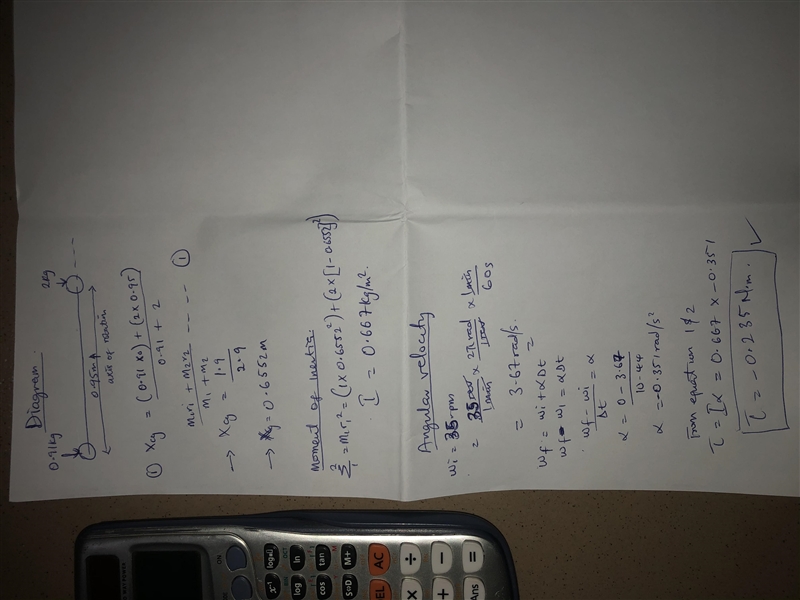 Diagram
0.91kg
2kg
0.95m
axis of rotation
① Xcg = (0.91 x0) + (2x 0.95)
0.91 + 2
m1r1 + m2r2
m1 + m2
---- ①
→ Xcg = 1.9
2.9
→ Xcg = 0.6552m
Moment of inertia:
= m1r1² = (1x 0.6552²) + (2x[1-0.6552]²)
I = 0.667kg/m².
Angular velocity
wi = 35rpm
= 35 rev x 2π rad x 1min
1min 1rev 60s
= 3.67rad/s.
wf = wi + αΔt
wf - wi = αΔt
wf - wi = α
Δt
α = 0 - 3.67
10.44
α = -0.351rad/s²
From equation 1 & 2
τ = Iα = 0.667 x -0.351
τ = -0.235 N/m.
ON
x-1
log
ln
cos
tan
S⇔D
M+
EL
AC
x
÷
+
-
Ans
=